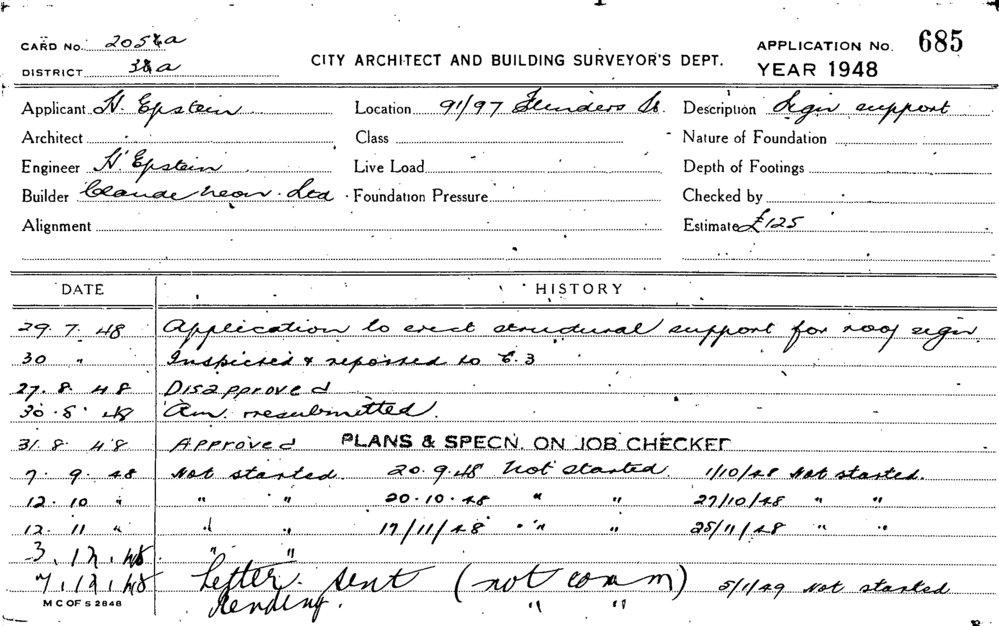 CARD No. 2056a APPLICATION No. 685
DISTRICT 38a CITY ARCHITECT AND BUILDING SURVEYOR'S DEPT. YEAR 1948
Applicant H. Epstein Location 91/97 Flinders St. Description Sign support
Architect Class Nature of Foundation
Engineer H. Epstein Live Load Depth of Footings
Builder Claude Neon. Ltd Foundation Pressure Checked by
Alignment Estimate £125
DATE HISTORY
29. 7. 48 Application to erect structural support for roof sign
30 " Inspected & reported to C. 3
27. 8. 48 Disapproved
30. 8. 48 Am. resubmitted.
31. 8. 48 Approved PLANS & SPECN. ON JOB CHECKED
7. 9. 48 Not started. 20.9.48 Not started. 1/10/48 Not started.
12. 10 " " " 20.10.48 " " 27/10/48 " "
12. 11 " " " 17/11/48 " " 25/11/48 " "
3. 12. 48 " "
7. 12. 48 Letter sent (not comm) 5/1/49 Not started
M C OF S 2848 Pending. " "